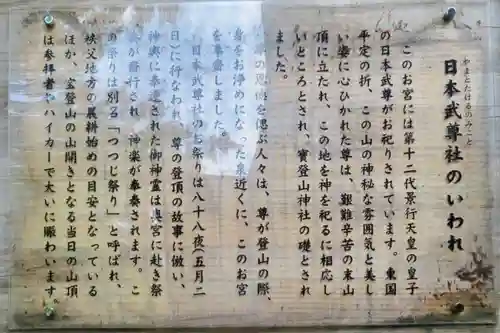 日本武尊社のいわれ
やまとたけるのみこと
このお宮には第十二代景行天皇の皇子
の日本武尊がお祀りされています。東国
平定の折、この山の神秘な雰囲気と美し
い姿に心ひかれた尊は、艱難辛苦の末山
頂に立たれ、この地を神を祀るに相応し
いところとされ、寳登山神社の礎とされ
ました。
の恩徳を偲ぶ人々は、尊が登山の際、
身をお浄めになった泉近くに、このお宮
を奉齋しました。
日本武尊社のお祭りは八十八夜(五月二
日)に行なわれ、尊の登頂の故事に倣い、
神輿に奉遷された御神霊は奥宮に赴き祭
が齋行され、神楽が奉奏されます。こ
の祭りは別名「つつじ祭り」と呼ばれ、
秩父地方の農耕始めの目安となっている
ほか、宝登山の山開きとなる当日の山頂
は参拝者やハイカーで大いに賑わいます